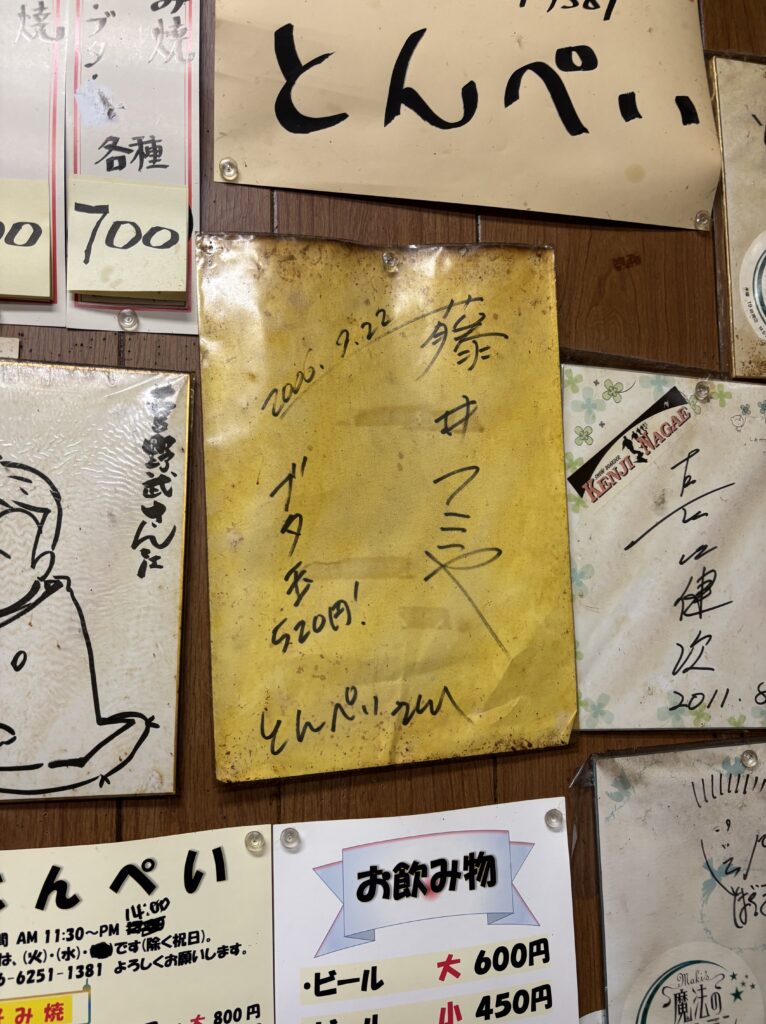 焼
み焼
ブタ・
各種
00
700
1381
とんぺい
2000.9.22
藤井フミヤ
ブタ玉
520円!
とんぺいさん江
野武さん江
KENJI NAGAE
長江健次
2011.8
とんぺい
間 AM 11:30～PM 14:00
は、(火)・(水)・
です(除く祝日)。
6-6251-1381 よろしくお願いします。
み焼
大 800円
お飲み物
・ビール 大 600円
ビール 小 450円
Maki's
魔法の